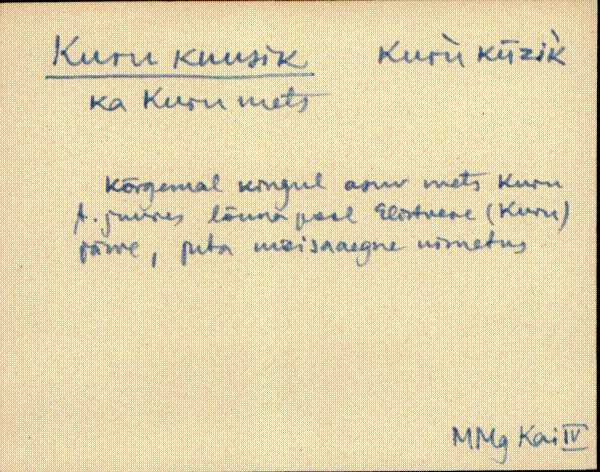 Kuru kuusik Kuru̇̀ kūzi̇̀k
ka Kuru mets
kõrgemal kingul asuv mets Kuru
t. juures lõuna pool Elistvere (Kuru)
järve, juba mõisaaegne nimetus
MMg Kai IV